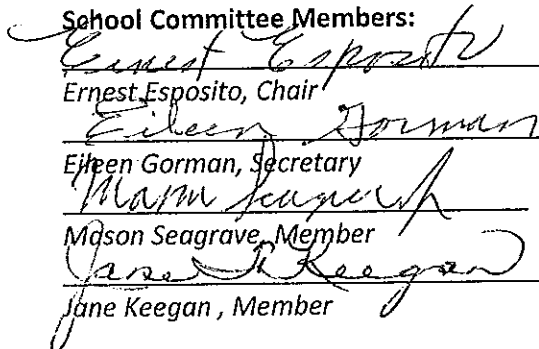 School Committee Members:
Ernest Esposito
Ernest Esposito, Chair
Eileen Gorman
Eileen Gorman, Secretary
Mason Seagrave
Mason Seagrave, Member
Jane Keegan
Jane Keegan , Member